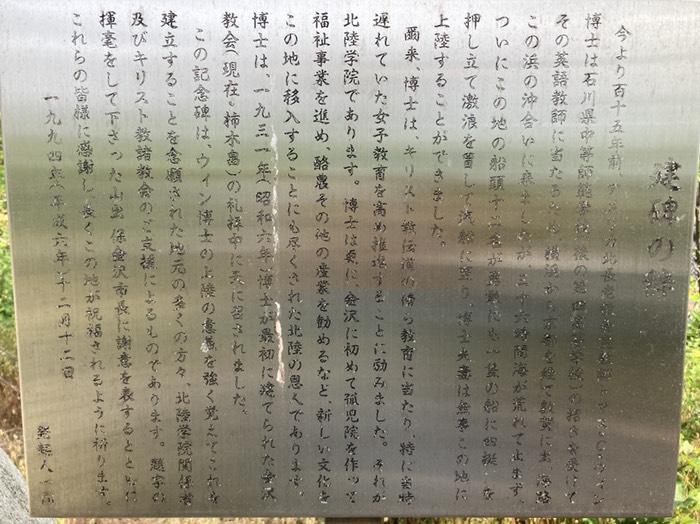 建碑の
今より百十五年前、
博士は石川県中等師範学校
その英語教師に当たるため、横浜から京都を経て敦賀に出、海路
この浜の沖合いに来ましたが、三十六時間海が荒れて止まず。
ついにこの地の船頭十二名が勇敢にも一隻の船に四挺を
押し立て激浪を冒して渡船に登り、博士夫妻は無事この地に
上陸することができました。
爾来、博士は、キリスト教伝道の傍ら教育に当たり、特に当時
遅れていた女子教育を高め推進することに励みました。それが
北陸学院であります。博士は更に、金沢に初めて孤児院を作って
福祉事業を進め、酪農その他の産業を勧めるなど、新しい文化を
この地に移入することにも尽くされた北陸の恩人であります。
博士は、一九三一年(昭和六年)博士が最初に建てられた金沢
教会(現在、柿木畠)の礼拝中に天に召されました。
この記念碑は、ウィン博士の上陸の意義を強く覚えてこれを
建立することを念願された地元の多くの方々、北陸学院関係者
及びキリスト教諸教会のご支援によるものであります。題字の
揮毫をして下さった山出 保金沢市長に謝意を表するとともに
これらの皆様に感謝し、永くこの地が祝福されるように祈ります。
一九九四年(平成六年)十二月十二日